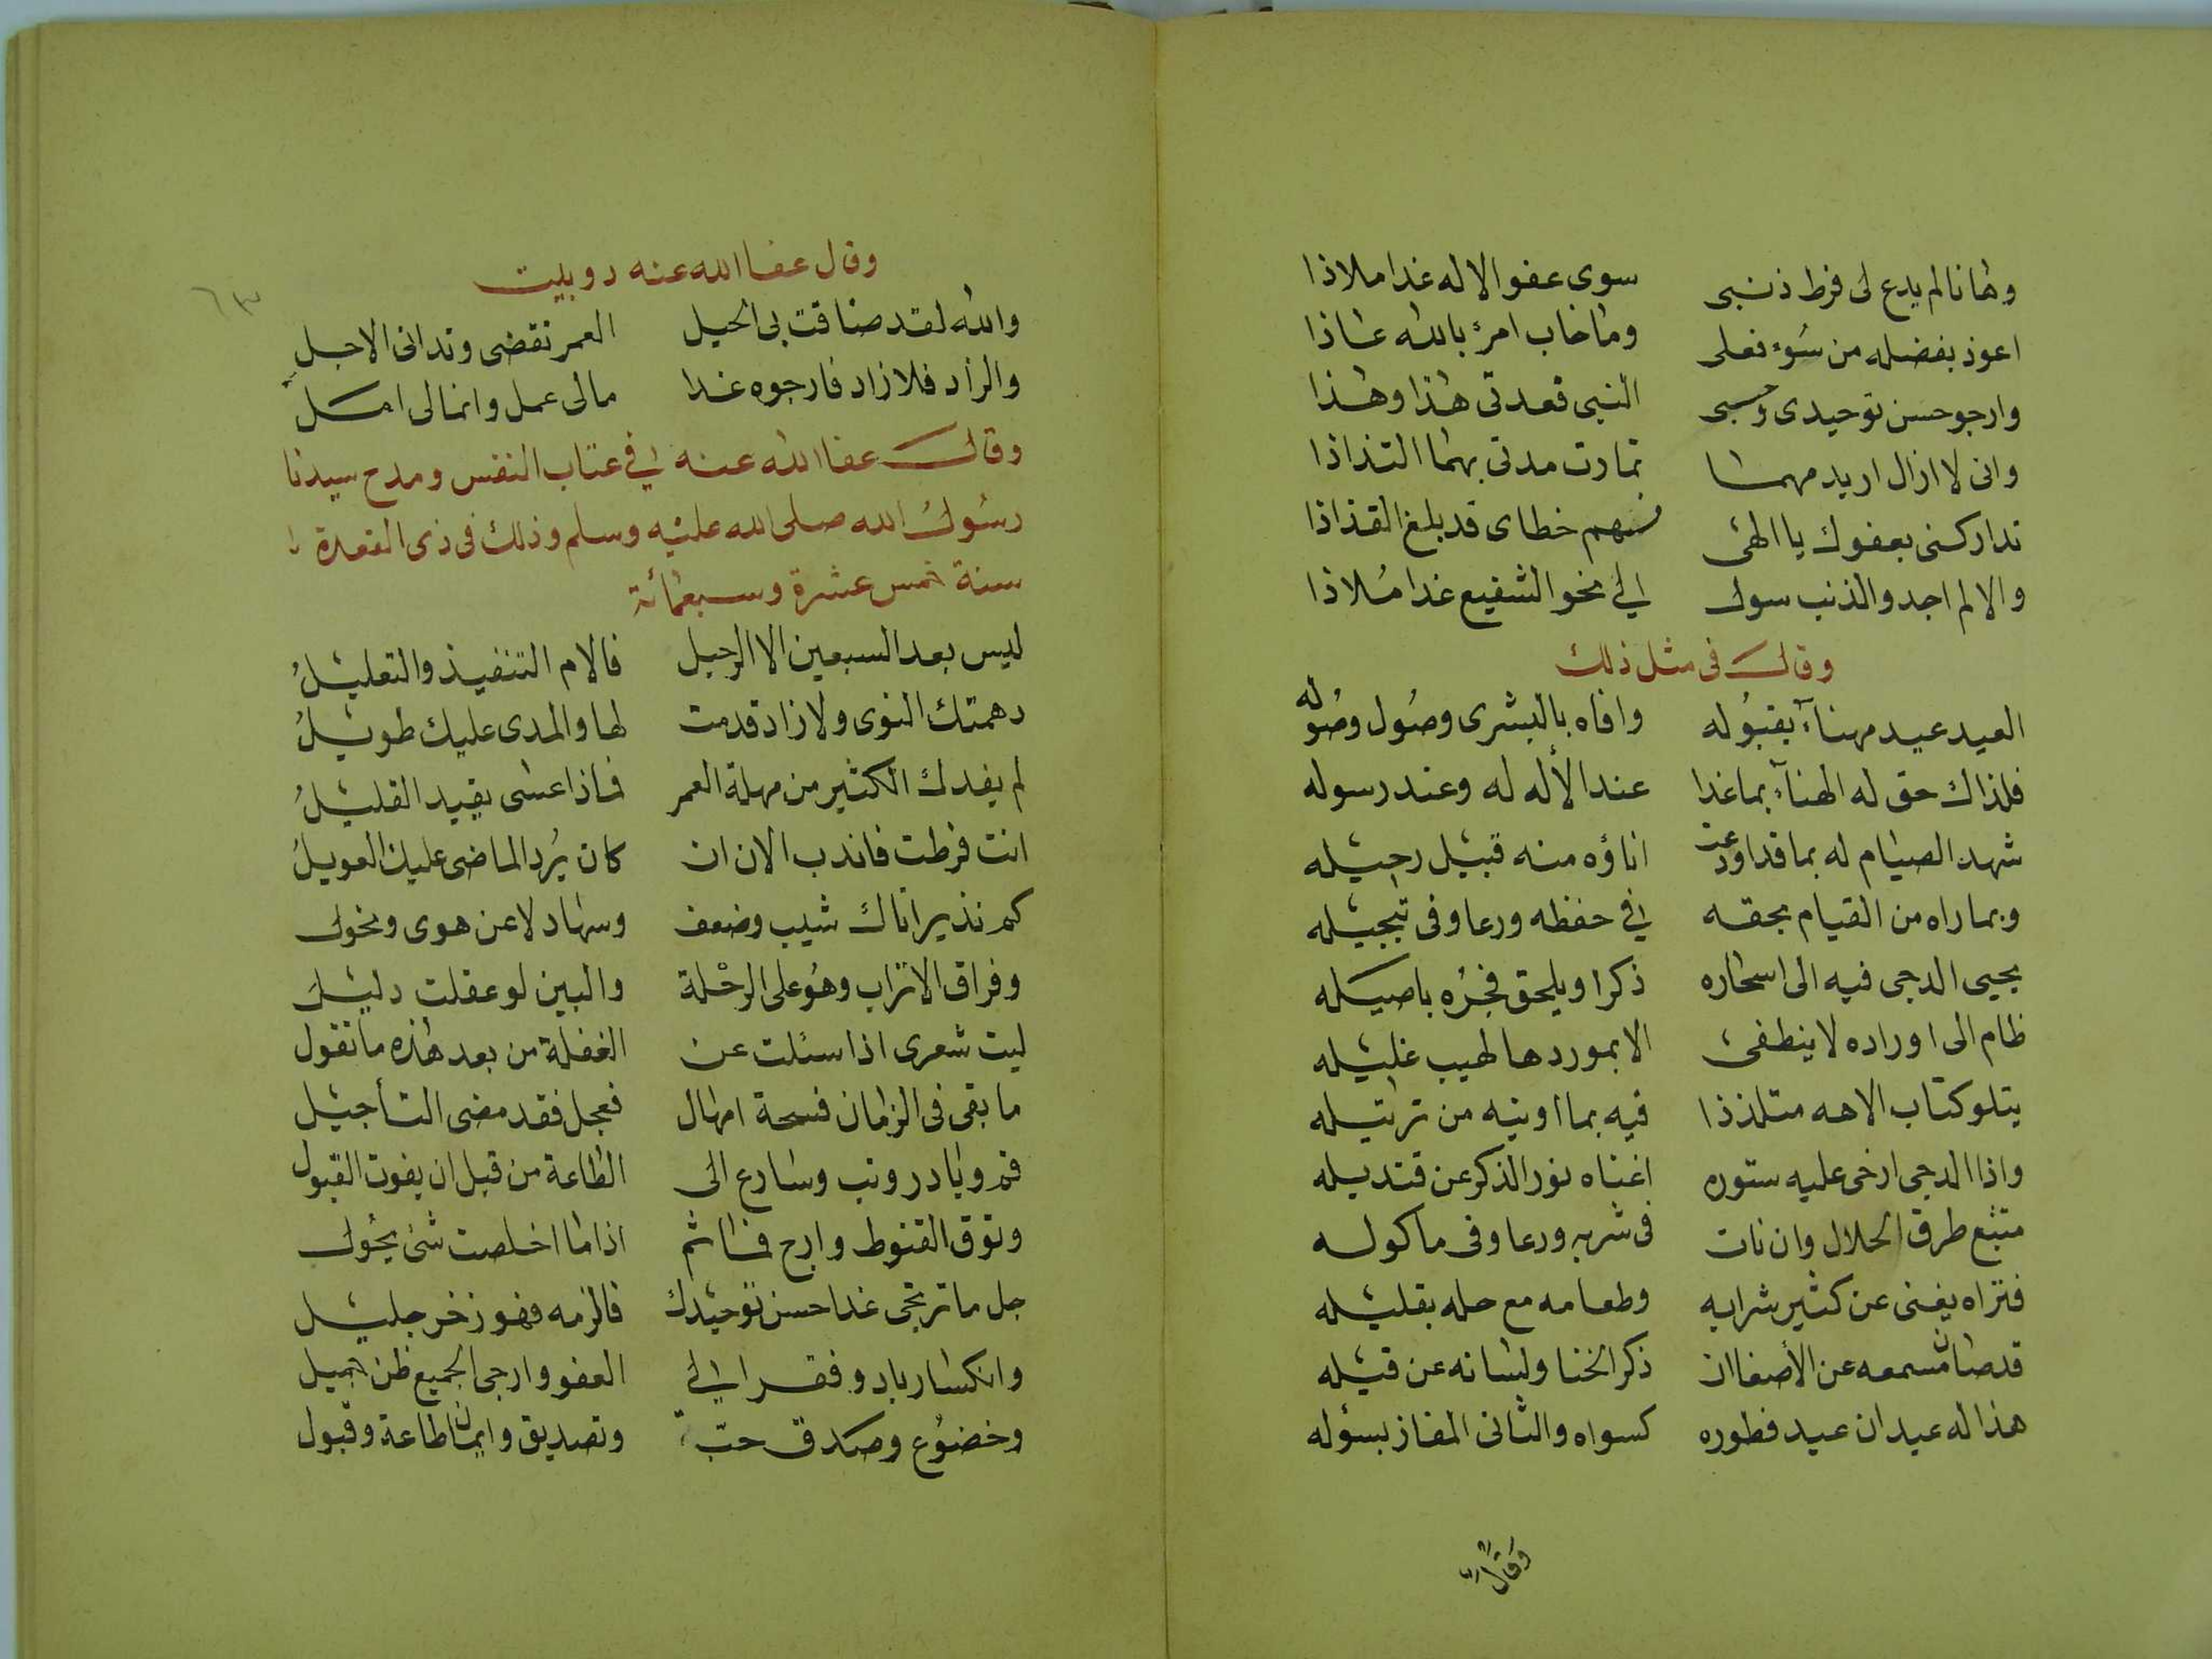 وها نا لم يدع لى فرط ذنبى سوى عفو الاله غدا ملاذا
اعوذ بفضله من سُوء فعلى وما خاب امرئ بالله عاذا
وارجو حسن توحيدى وحبى النبى فعدتى هذا وهذا
وانى لا ازال اريد مهما تمادت مدتى بهما التذاذا
تداركنى بعفوك يا الهى فسهم خطاى قد بلغ القذاذا
والا لم اجد والذنب سوك الى نحو الشفيع غدا مُلاذا
وقال فى مثل ذلك
العيد عيد مهناء بقبُوله وافاه بالبشرى وصُول وصُوله
فلذاك حق له الهناء بما غدا عند الأله له وعند رسوله
شهد الصيام له بما قد اودعت اناؤه منه قبيل رحيله
وبما راه من القيام بحقه فى حفظه ورعا وفى تبجيله
يحيى الدجى فيه الى اسحاره ذكرا ويلحق فجرُه باصيله
ظام الى اوراده لا ينطفى الا بموردها لهيب غليله
يتلو كتاب الاهه متلذذا فيه بما اوتيه من ترتيله
واذا الدجى ارخى عليه ستوره اغناه نور الذكر عن قنديله
متتبع طرق الحلال وان نات فى شربه ورعا وفى ماكوله
فتراه يغنى عن كثير شرابه وطعامه مع حله بقليله
قد صان مسمعه عن الأصغا ان ذكر الخنا ولسانه عن قيله
هذا له عيدان عيد فطوره كسواه والثانى المفاز بسؤله
وقال
٦٣
وقال عفا الله عنه دوبيت
والله لقد ضاقت بى الحيل العمر تقضى وتدانى الاجل
والزاد فلا زاد فارجوه غدا مالى عمل وانما لى امل
وقال عفا الله عنه فى عتاب النفس ومدح سيدنا
رسُول الله صلى الله عليه وسلم وذلك فى ذى القعدة
سنة خمس عشرة وسبعمائة
ليس بعد السبعين الا الرحيل فالام التنفيذ والتعليلُ
دهمتك النوى ولا زاد قدمت لها والمدى عليك طويلُ
لم يفدك الكثير من مهلة العمر فماذا عسى يفيد القليلُ
انت فرطت فاندب الان ان كان يُرد الماضى عليك العويلُ
كم نذير اتاك شيب وضعف وسهاد لا عن هوى ونحول
وفراق الاتراب وهُو على الرحْلة والبين لو عقلت دليل
ليت شعرى اذا سئلت عن الغفلة من بعد هذه ما تقول
ما بقى فى الزمان فسحة امهال فعجل فقد مضى التأجيل
قم وبادر وتب وسارع الى الطاعة من قبل ان يفوت القبول
وتوق القنوط وارج فما ثم اذا ما اخلصت شئ يحُول
جل ما ترتجى غدا حسن توحيدك فالزمه فهو زخر جليل
وانكسار باد وفقر الى العفو وارجى الجميع ظن جميل
وخضوُع وصدق حبّ وتصديق وايمان طاعة وقبول